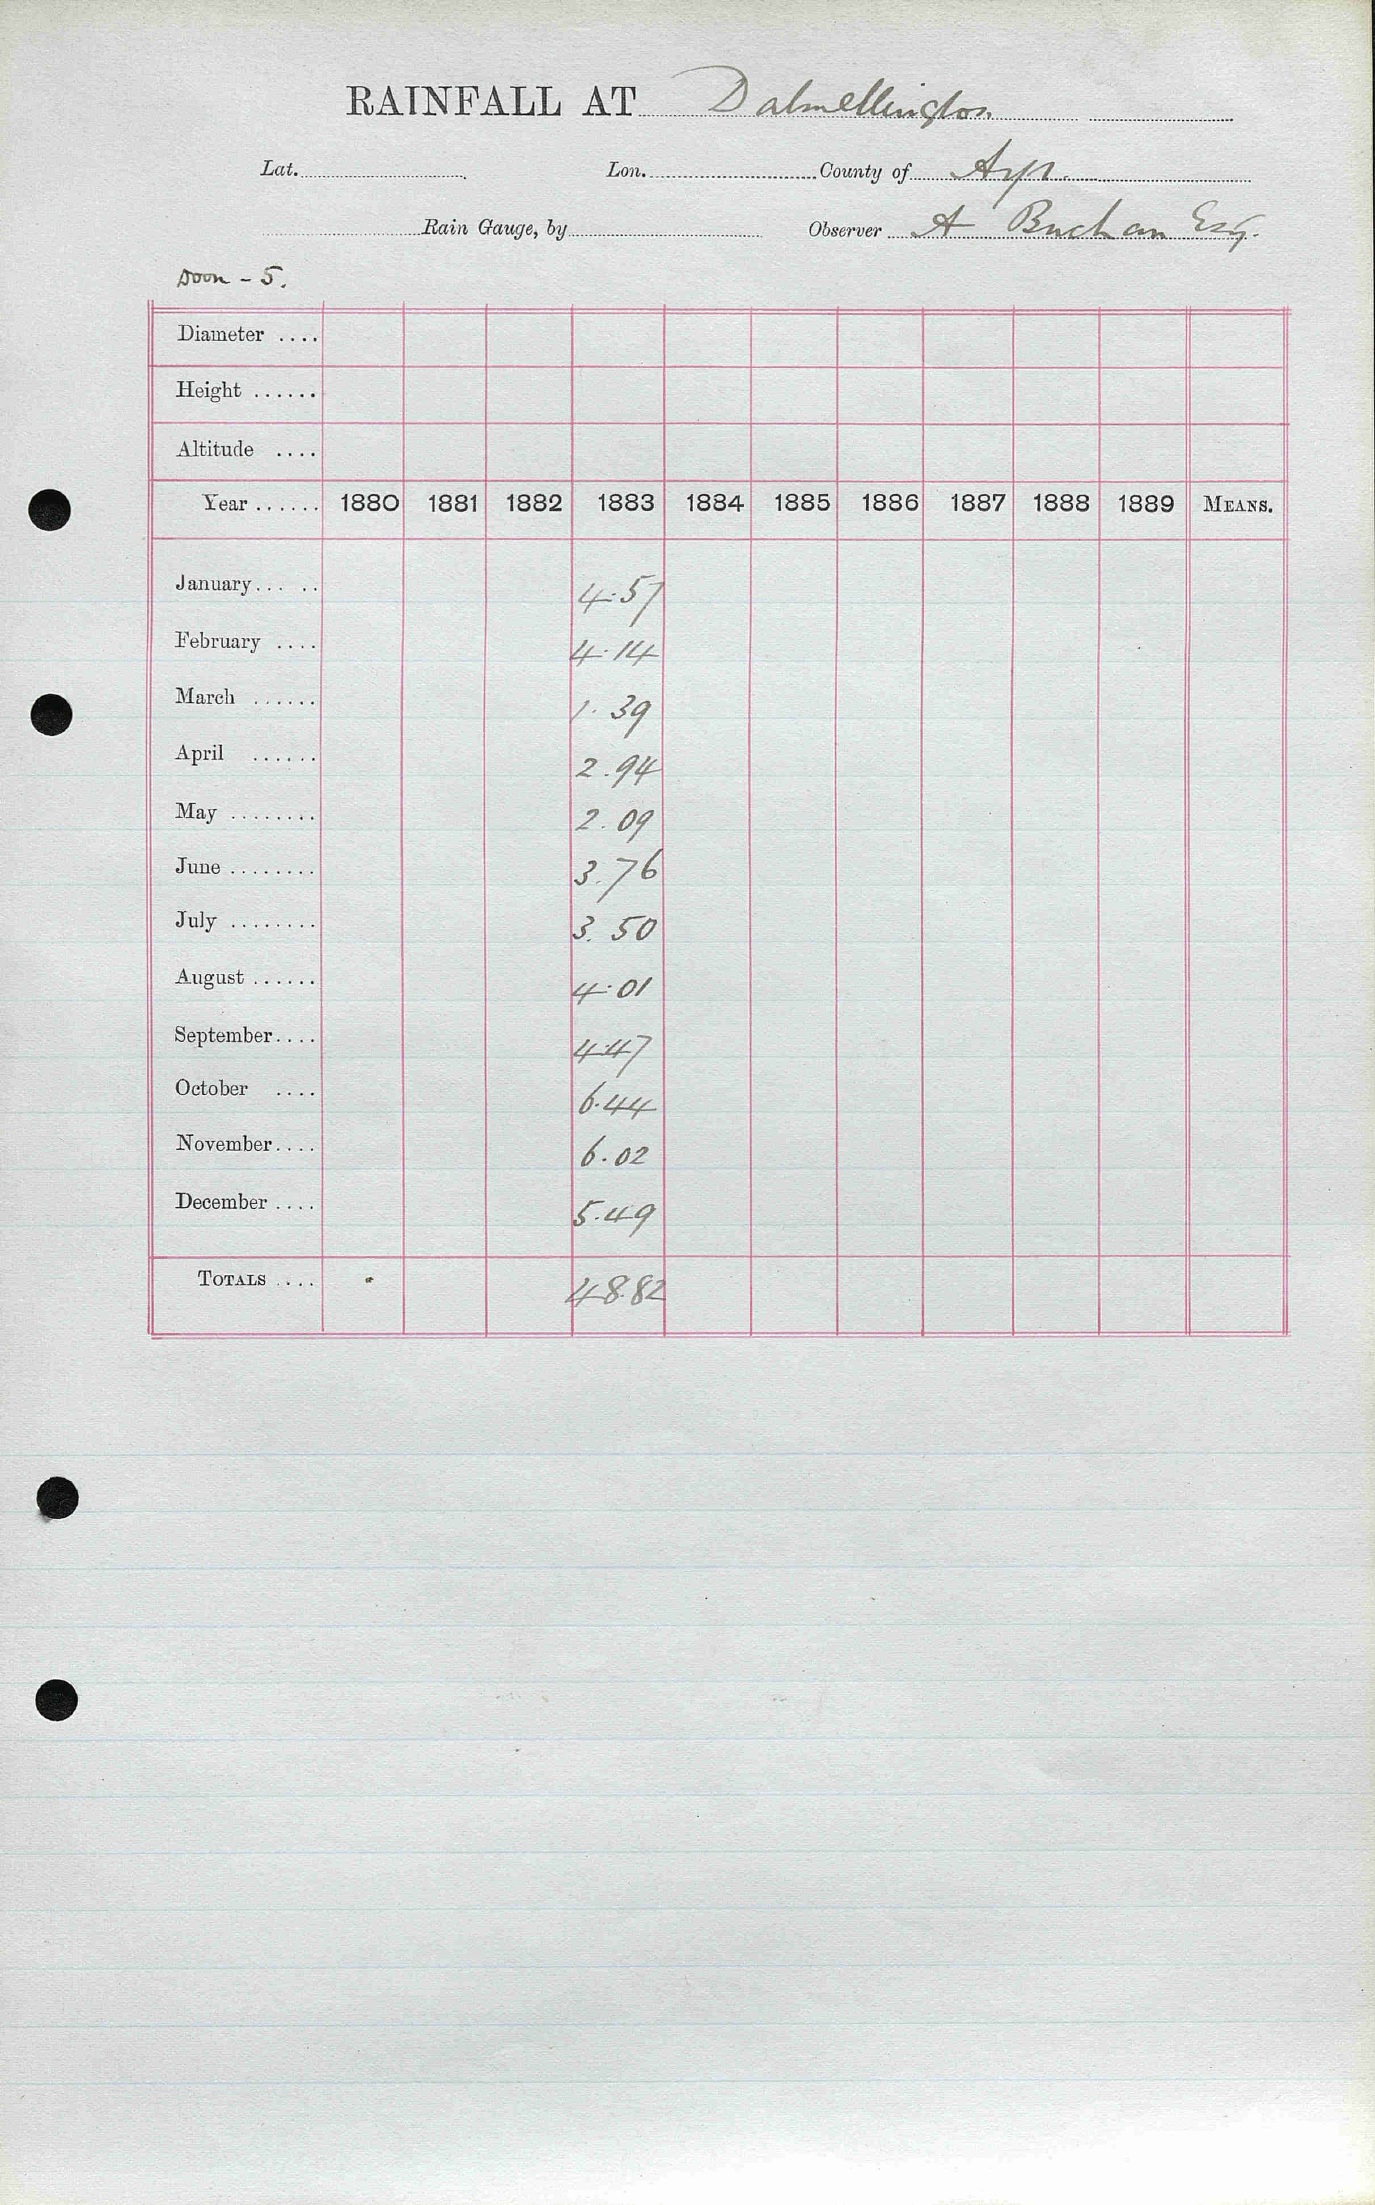 RAINFALL AT Dalmellington
Lat. Lon. County of Ayr.
Rain Gauge, by Observer A Buchan Esq.
Doon - 5.
Diameter ....
Height ......
Altitude ....
Year ...... 1880 1881 1882 1883 1884 1885 1886 1887 1888 1889 MEANS.
January... .. 4.57
February .... 4.14
March ...... 1.39
April ...... 2.94
May ........ 2.09
June ........ 3.76
July ........ 3.50
August ...... 4.01
September.... 4.47
October .... 6.44
November.... 6.02
December .... 5.49
TOTALS .... 48.82